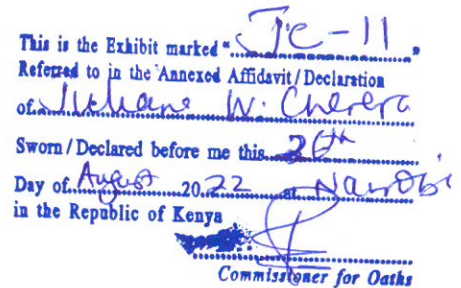 This is the Exhibit marked "JC-11"
Referred to in the Annexed Affidavit/Declaration
of Juliane W. Cherera
Sworn/Declared before me this 26th
Day of August 2022 at Nairobi
in the Republic of Kenya
Commissioner for Oaths